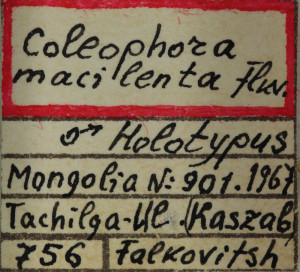 Coleophora
macilenta Flkv.
♂ Holotypus
Mongolia N: 901.1967
Tachilga-Ul (Kaszab)
756 Falkovitsh